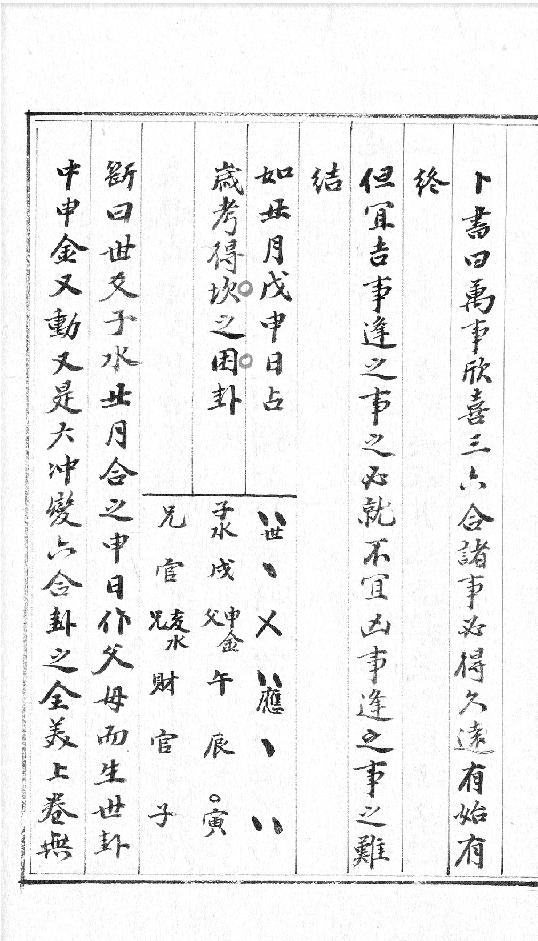 卜書曰萬事欣喜三六合諸事必得久遠有始有
終
但宜吉事逢之事之必就不宜凶事逢之事之難
結
如丑月戊申日占
歲考得坎之困卦
世 應
子水 戌 申金父 午 辰 寅
兄 官 亥水兄 財 官 子
斷曰世爻子水丑月合之申日作父母而生世卦
中申金又動又是六冲變六合卦之全美上卷